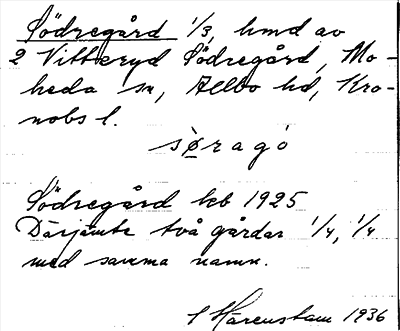 Södregård 1/3, hmd av
2 Vittaryd Södregård, Mo-
heda sn, Allbo hd, Kro-
nobs l.
sø̀ragó
Södregård kb 1925
Därjämte två gårdar 1/4, 1/4
med samma namn.
Härenstam 1936